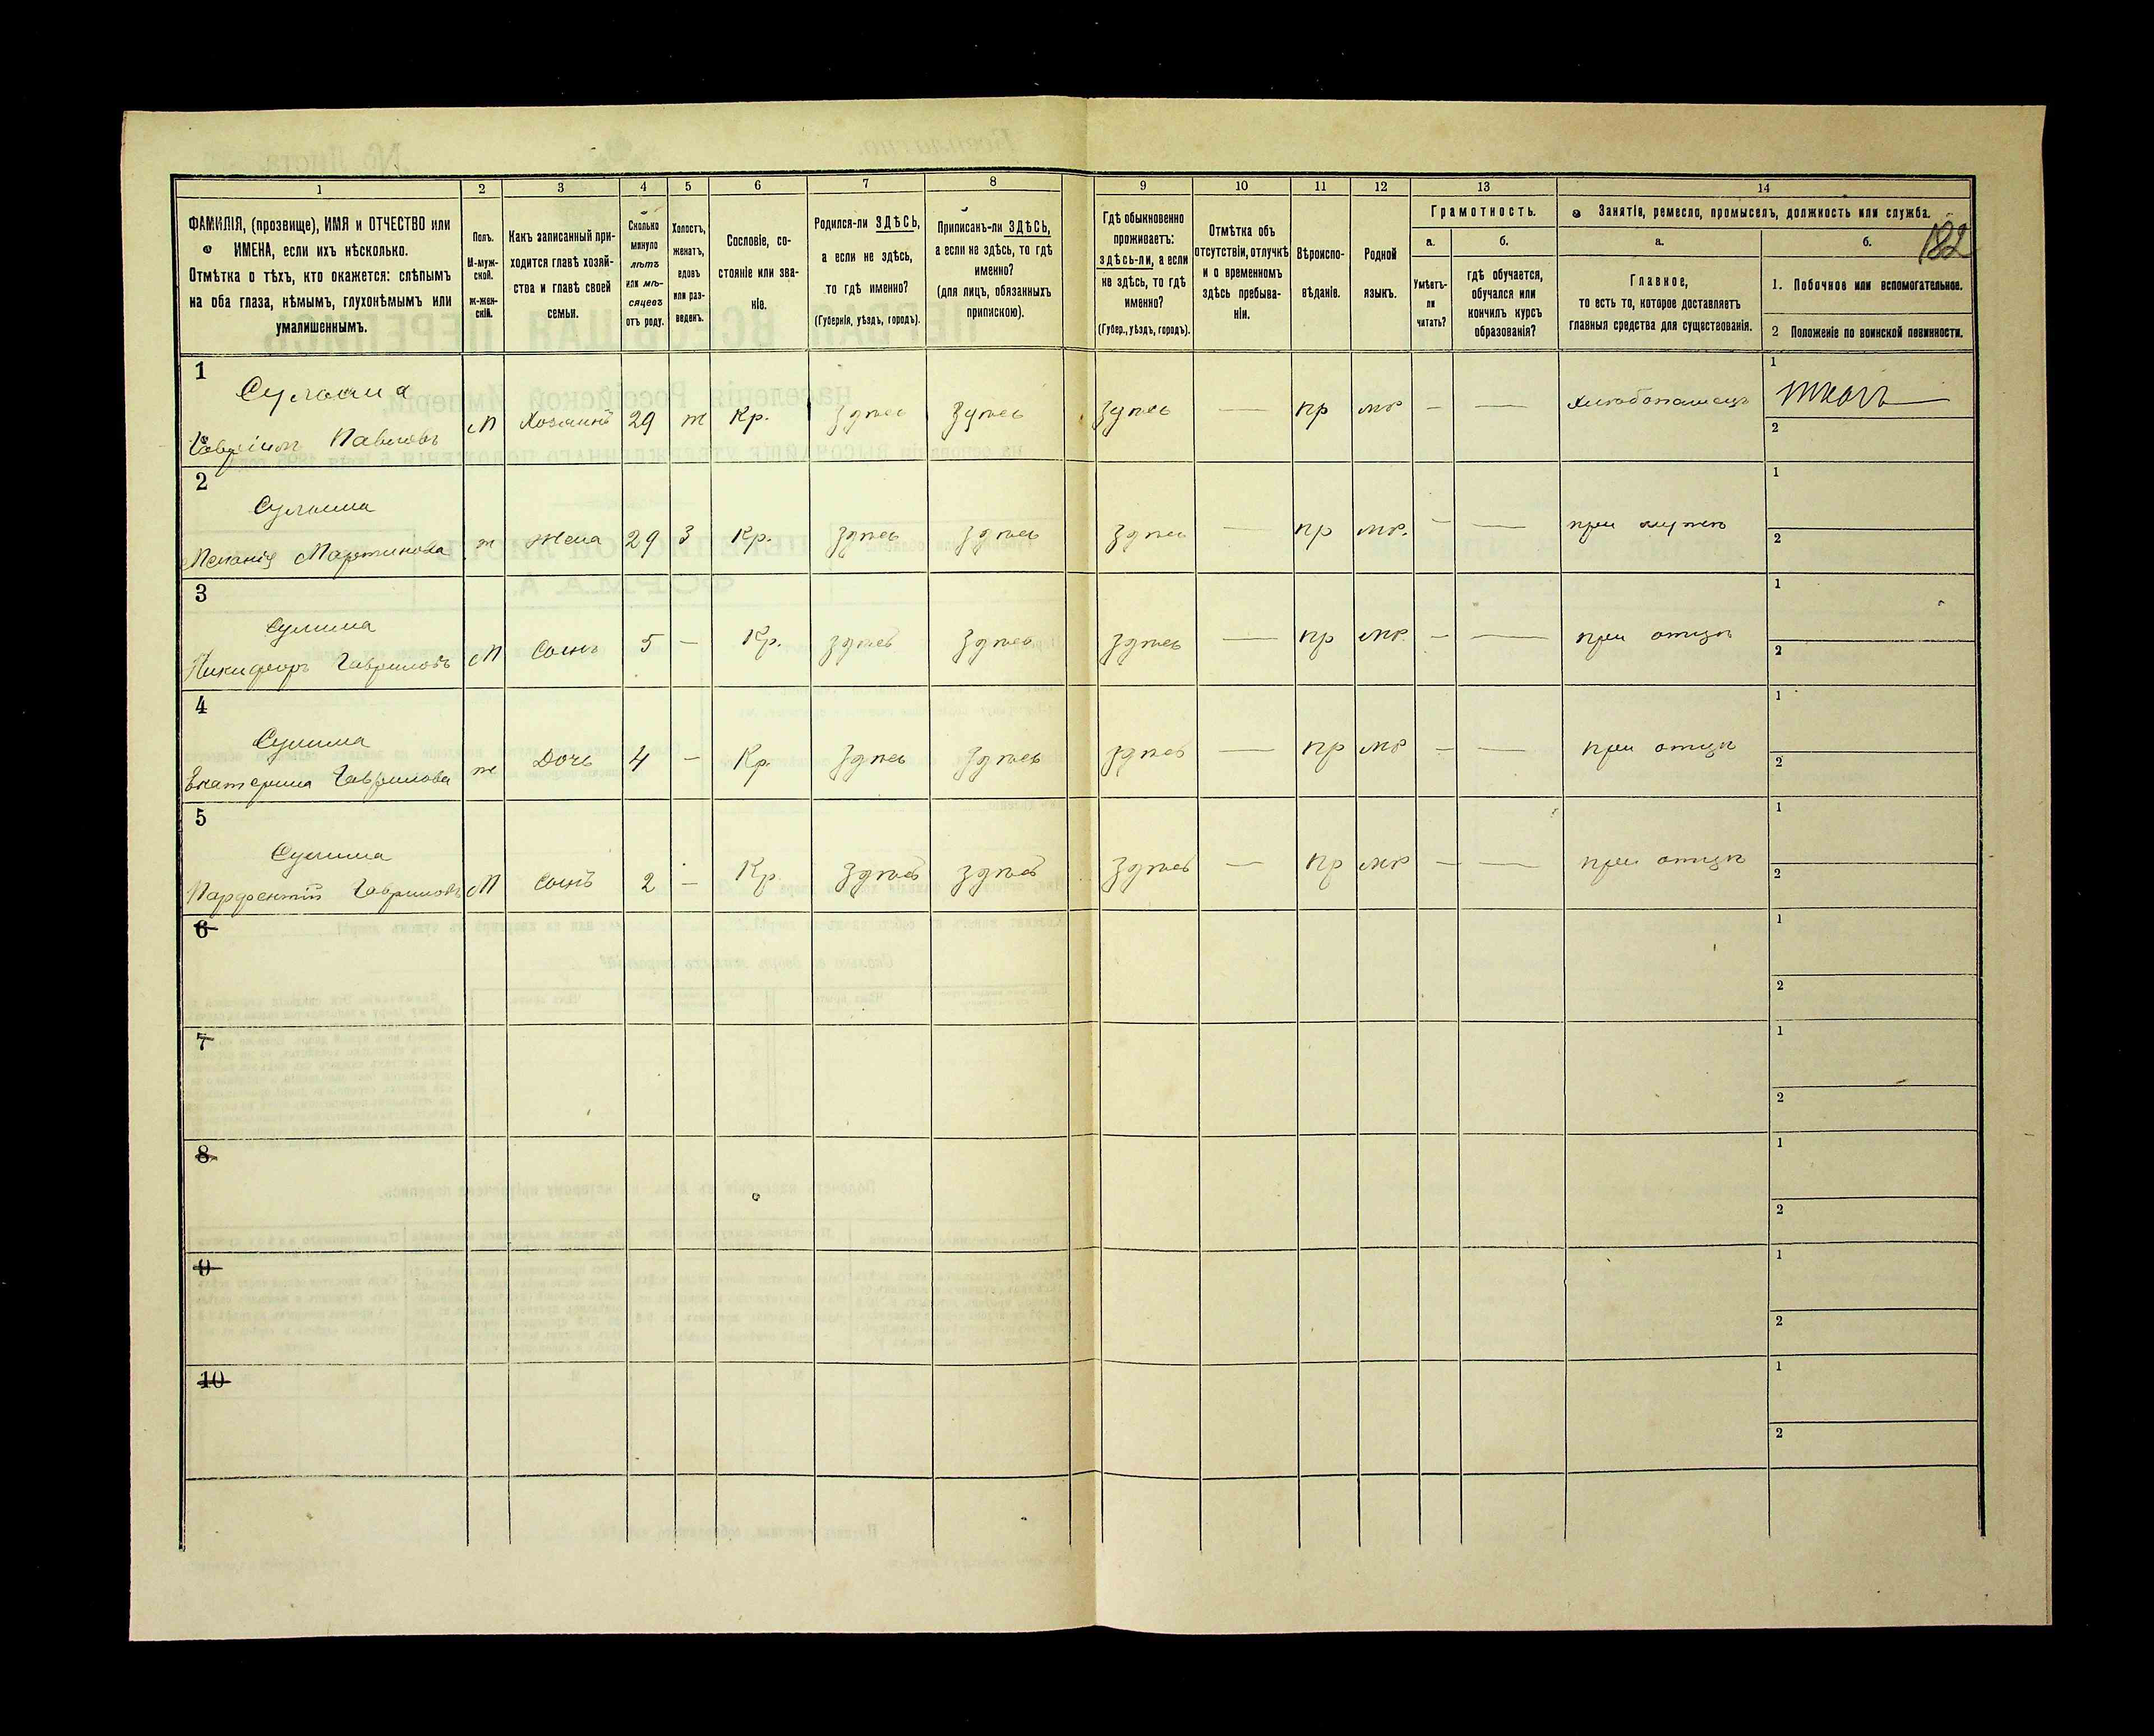 1 2 3 4 5 6 7 8 9 10 11 12 13 14
ФАМИЛІЯ, (прозвище), ИМЯ и ОТЧЕСТВО или
ИМЕНА, если ихъ нѣсколько.
Отмѣтка о тѣхъ, кто окажется: слѣпымъ
на оба глаза, нѣмымъ, глухонѣмымъ или
умалишеннымъ.
Полъ.
М-муж-
ской.
ж-жен-
скій.
Какъ записанный при-
ходится главѣ хозяй-
ства и главѣ своей
семьи.
Сколько
минуло
лѣтъ
или мѣ-
сяцевъ
отъ роду.
Холостъ,
женатъ,
вдовъ
или раз-
веденъ.
Сословіе, со-
стояніе или зва-
ніе.
Родился-ли ЗДѢСЬ,
а если не здѣсь,
то гдѣ именно?
(Губернія, уѣздъ, городъ).
Приписанъ-ли ЗДѢСЬ,
а если не здѣсь, то гдѣ
именно?
(для лицъ, обязанныхъ
припискою).
Гдѣ обыкновенно
проживаетъ:
здѣсь-ли, а если
не здѣсь, то гдѣ
именно?
(Губер., уѣздъ, городъ).
Отмѣтка объ
отсутствіи, отлучкѣ
и о временномъ
здѣсь пребыва-
ніи.
Вѣроиспо-
вѣданіе.
Родной
языкъ.
Грамотность.
а.
Умѣетъ-
ли
читать?
б.
гдѣ обучается,
обучался или
кончилъ курсъ
образованія?
Занятіе, ремесло, промыселъ, должность или служба.
182
а.
Главное,
то есть то, которое доставляетъ
главныя средства для существованія.
б.
1. Побочное или вспомогательное.
2 Положеніе по воинской повинности.
1
Сулима
Гавріилъ Павловъ М Хозяинъ 29 ж Кр. Здѣсь Здѣсь Здѣсь — пр мр — — Хлѣбопашецъ 1 ткачъ
2
2
Сулима
Меланія Мартинова ж Жена 29 З Кр. Здѣсь Здѣсь Здѣсь — пр мр. — — при мужѣ 1
2
3
Сулима
Никифоръ Гавриловъ М Сынъ 5 — Кр. Здѣсь Здѣсь Здѣсь — пр мр — — при отцѣ 1
2
4
Сулима
Екатерина Гаврилова ж Дочь 4 — Кр. Здѣсь Здѣсь Здѣсь — пр мр — — при отцѣ 1
2
5
Сулима
Парфентій Гавриловъ М Сынъ 2 — Кр. Здѣсь Здѣсь Здѣсь — пр мр — — при отцѣ 1
2
6 1
2
7 1
2
8 1
2
9 1
2
10 1
2